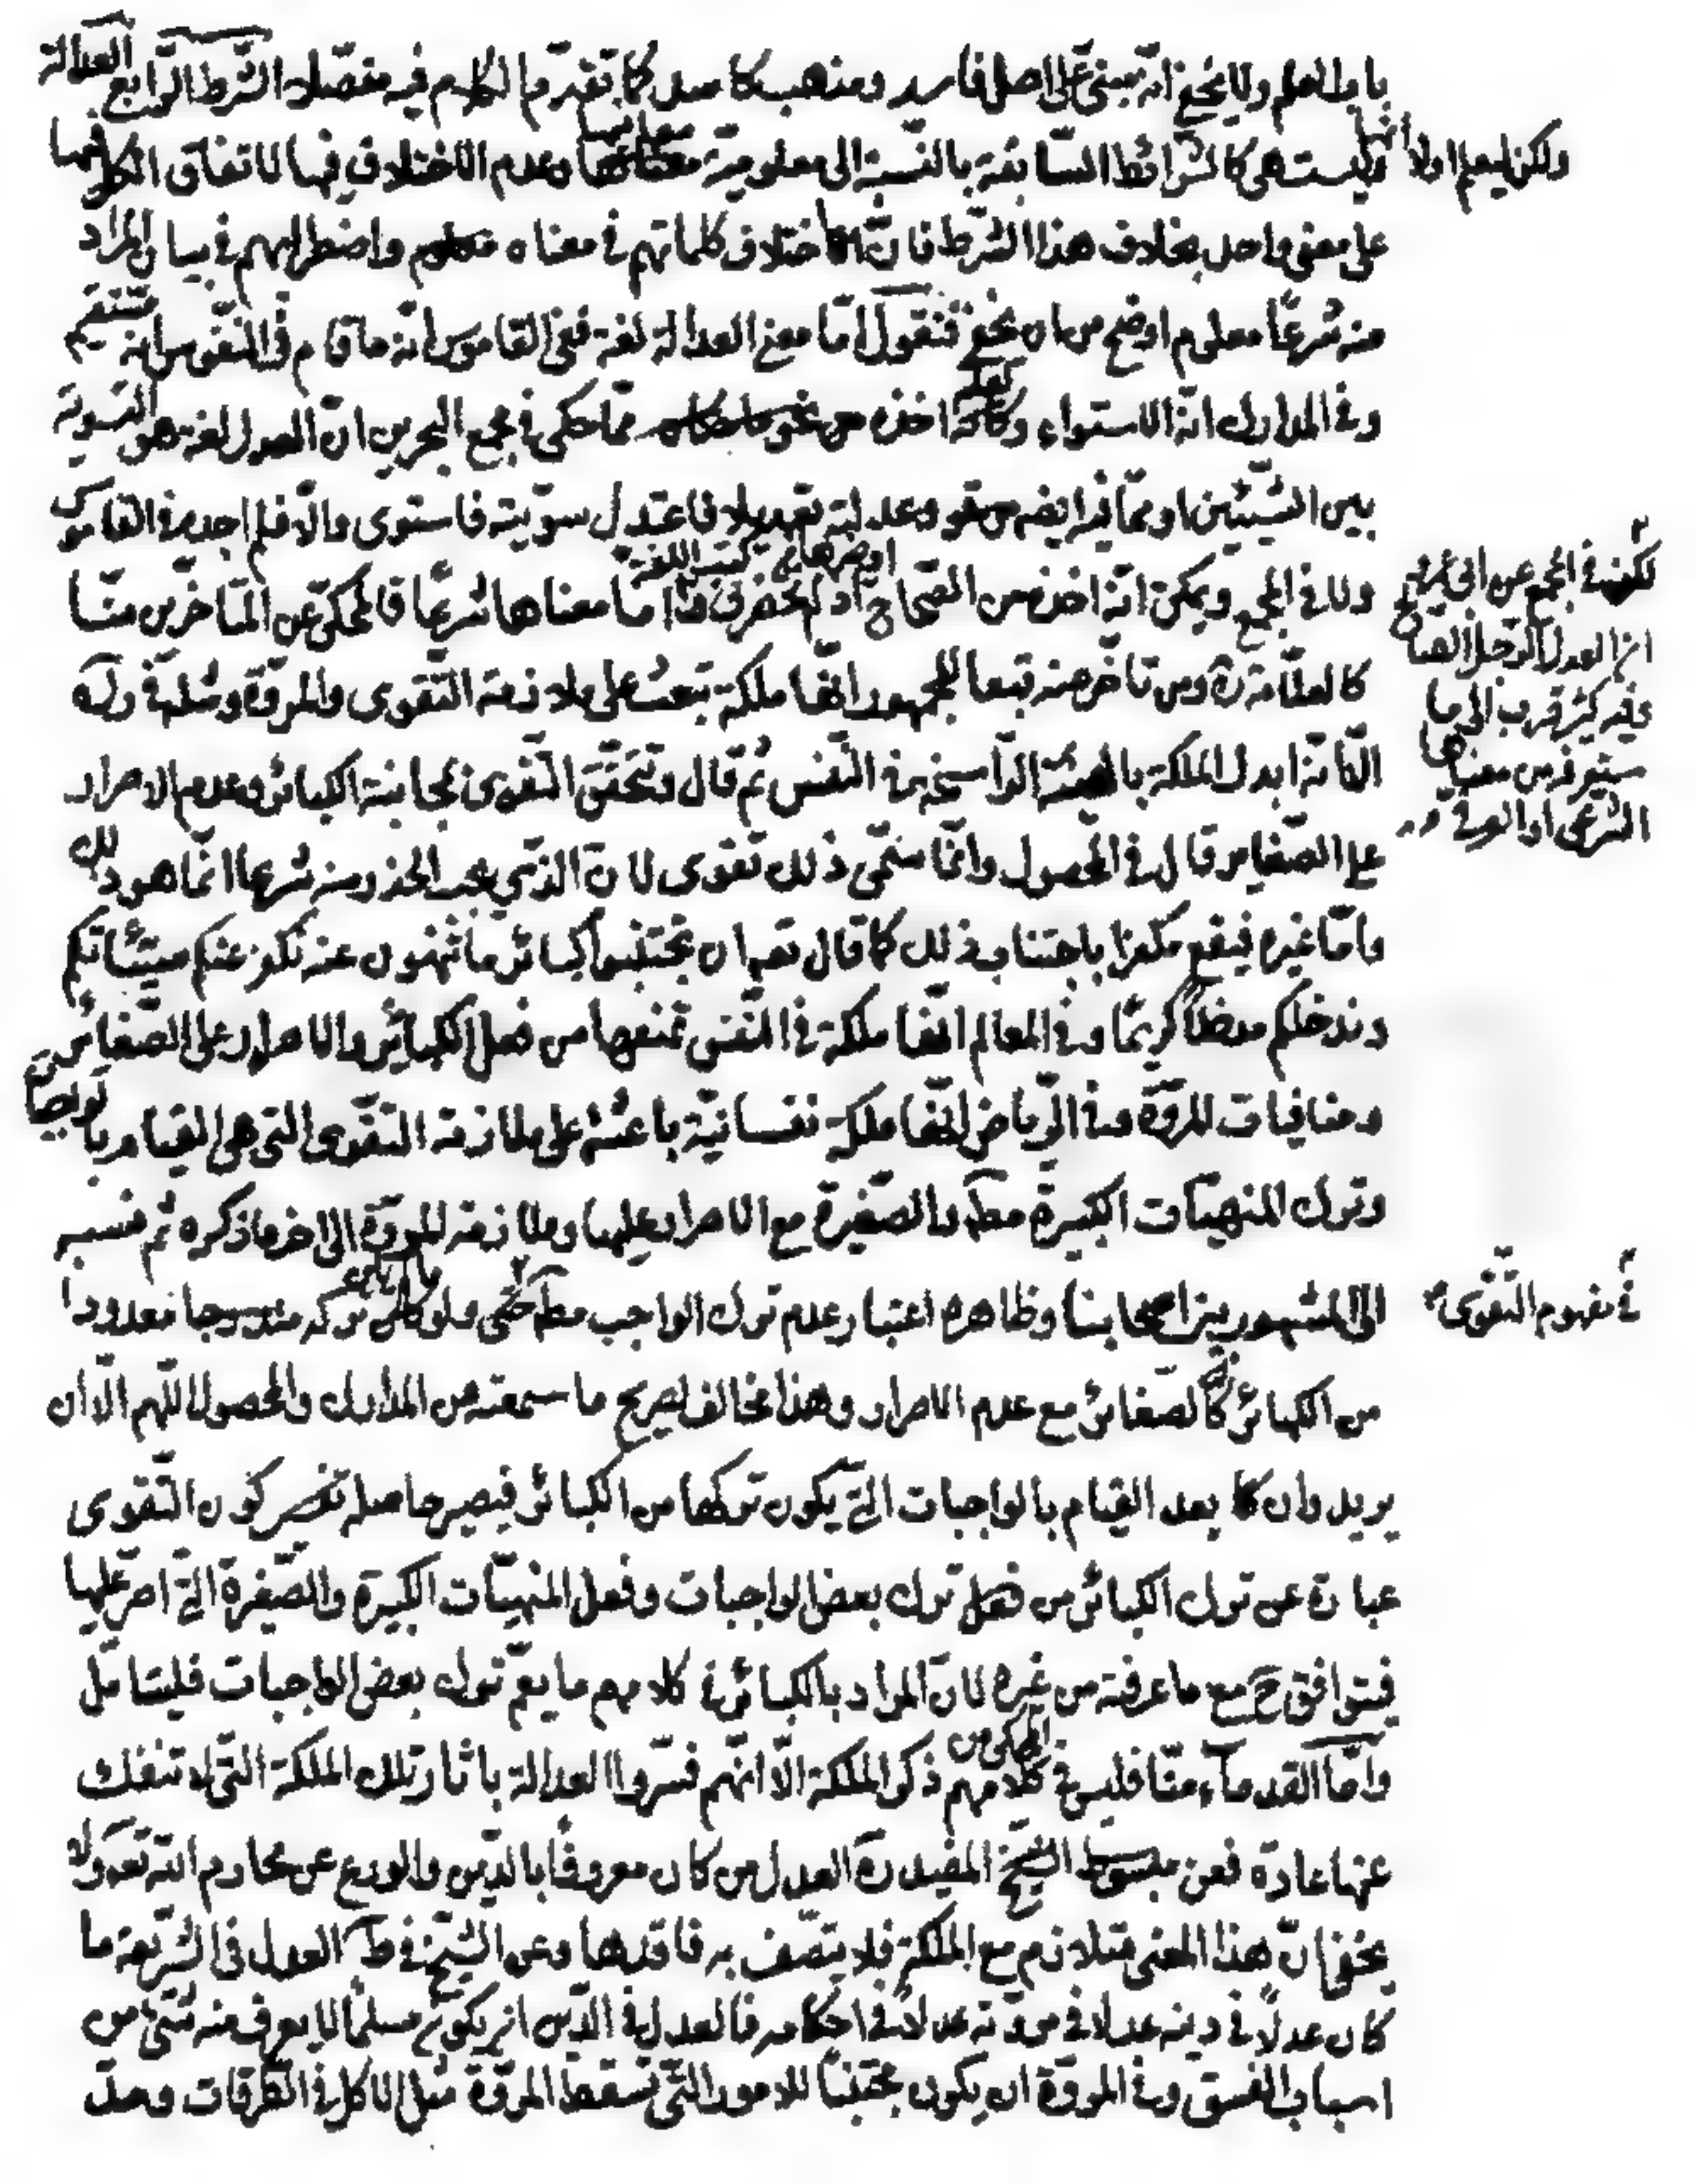 باب العلم ولا يخفى انّه مبنىّ على اصل فاسد ومذهب كاسد كما تقدّم الكلام فيه مفصّلا الشرط الرّابع العدالة
وليست هى كالشرائط السّابقة بالنّسبة الى معلوميّة معانيها وعدم الاختلاف فيها لاتفاق الكل فيها
ولكن ليعلم اولا انها
على معنى واحد بخلاف هذا الشّرط فانّ اختلاف كلماتهم فى معناه واضطرابهم فى بيان المراد
منه شرعًا معلوم اوضح من ان يخفى فنقول امّا معنى العدالة لغة ففى القاموس انّه ما قام فى النّفوس انه مستقيم
وفى المدارك انّه الاستواء وكانه اخذه ممّا حكى فى مجمع البحرين ان العدل لغة هو التسوية
بين الشّيئين او ممّا فيه ايضا وعدلته تعديلا فاعتدل سوّيته فاستوى والّا فلم اجده فى القاموس
ولا فى المجمع ويمكن انّه اخذه من الصّحاح اذ لم يحضرنى او من غيرها من كتب اللغة وامّا معناها شرعًا فالمحكىّ عن المتأخّرين منّا
لكنه فى المجمع عن
ان العدل الرّجل الصالح
قرب الى ما
ستعرفه من معناها
الشّرعى او العرفى
كالعلّامة ره ومن تأخّر عنه تبعا للجمهور انّها ملكة تبعث على ملازمة التّقوى والمروّة ومثله فى ولده
الّا انّه ابدل الملكة بالهيئة الرّاسخة فى النّفس ثم قال وتتحقّق التّقوى بمجانبة الكبائر وعدم الاصرار
على الصّغاير قال فى المحصول وانّما سمّى ذلك تقوى لانّ الذّى يجب الحذر منه شرعا انّما هو ذلك
وامّا غيره فيقع مكفرا باجتناب ذلك كما قال تعه ان تجتنبوا كبائر ما تنهون عنه نكفر عنكم سيّئاتكم
وندخلكم مدخلاً كريمًا وفى المعالم انّها ملكة فى النّفس تمنعها من فعل الكبائر والاصرار على الصّغائر
ومنافيات المروّة وفى الرّياض انّها ملكة نفسانيّة باعثة على ملازمة التّقوى التى هى القيام بالواجبات
وترك المنهيّات الكبيرة مطلقا والصّغيرة مع الاصرار عليها وملازمة المروّة الى اخر ما ذكره ثم نسبه
الى المشهور بين اصحابنا وظاهره اعتبار عدم ترك الواجب مطلقا حتّى ما لم يكن تركه معدودا
فى مفهوم التّقوى
من الكبائر كالصّغائر مع عدم الاصرار وهذا مخالف لصريح ما سمعته من المدارك والمحصول اللّهم الّا ان
يريد وان كا بعد القيام بالواجبات التى يكون تركها من الكبائر فيصير حاصله تفسير كون التّقوى
عبارة عن ترك الكبائر من فعل ترك بعض الواجبات وفعل المنهيّات الكبيرة والصّغيرة التى اصر عليها
فيتوافق ح مع ما عرفته من غيره لانّ المراد بالكبائر فى كلامهم ما يعمّ ترك بعض الواجبات فليتامّل
وامّا القدماء منّا فليس فى كلامهم المحكى من ذكر الملكة الّا انّهم فسّروا العدالة باثار تلك الملكة التّى لا تنفك
عنها عادة فعن مبسوط الشّيخ المفيد ره العدل من كان معروفًا بالدّين والورع عن محارم الله تعه ولا
يخفى انّ هذا المعنى متلازم مع الملكة فلا يتّصف به فاقدها وعن الشّيخ فى ط العدل فى الشّريعة ما
كان عدلًا فى دينه عدلا فى مروته عدلا فى احكامه فالعدل فى الدّين ان يكون مسلمًا لا يعرف منه شىء من
اسباب الفسق وفى المروّة ان يكون مجتنبًا للامور التّى تسقط المروّة مثل الاكل فى الطّرقات ومدّ